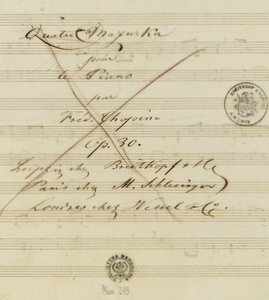 Quatre Mazurka
pour
le Piano
par
Fréd. Chopin
Op. 30.
Leipzig chez Breitkopf & H
Paris chez M. Schlesinger
Londres chez Wessel & Co.